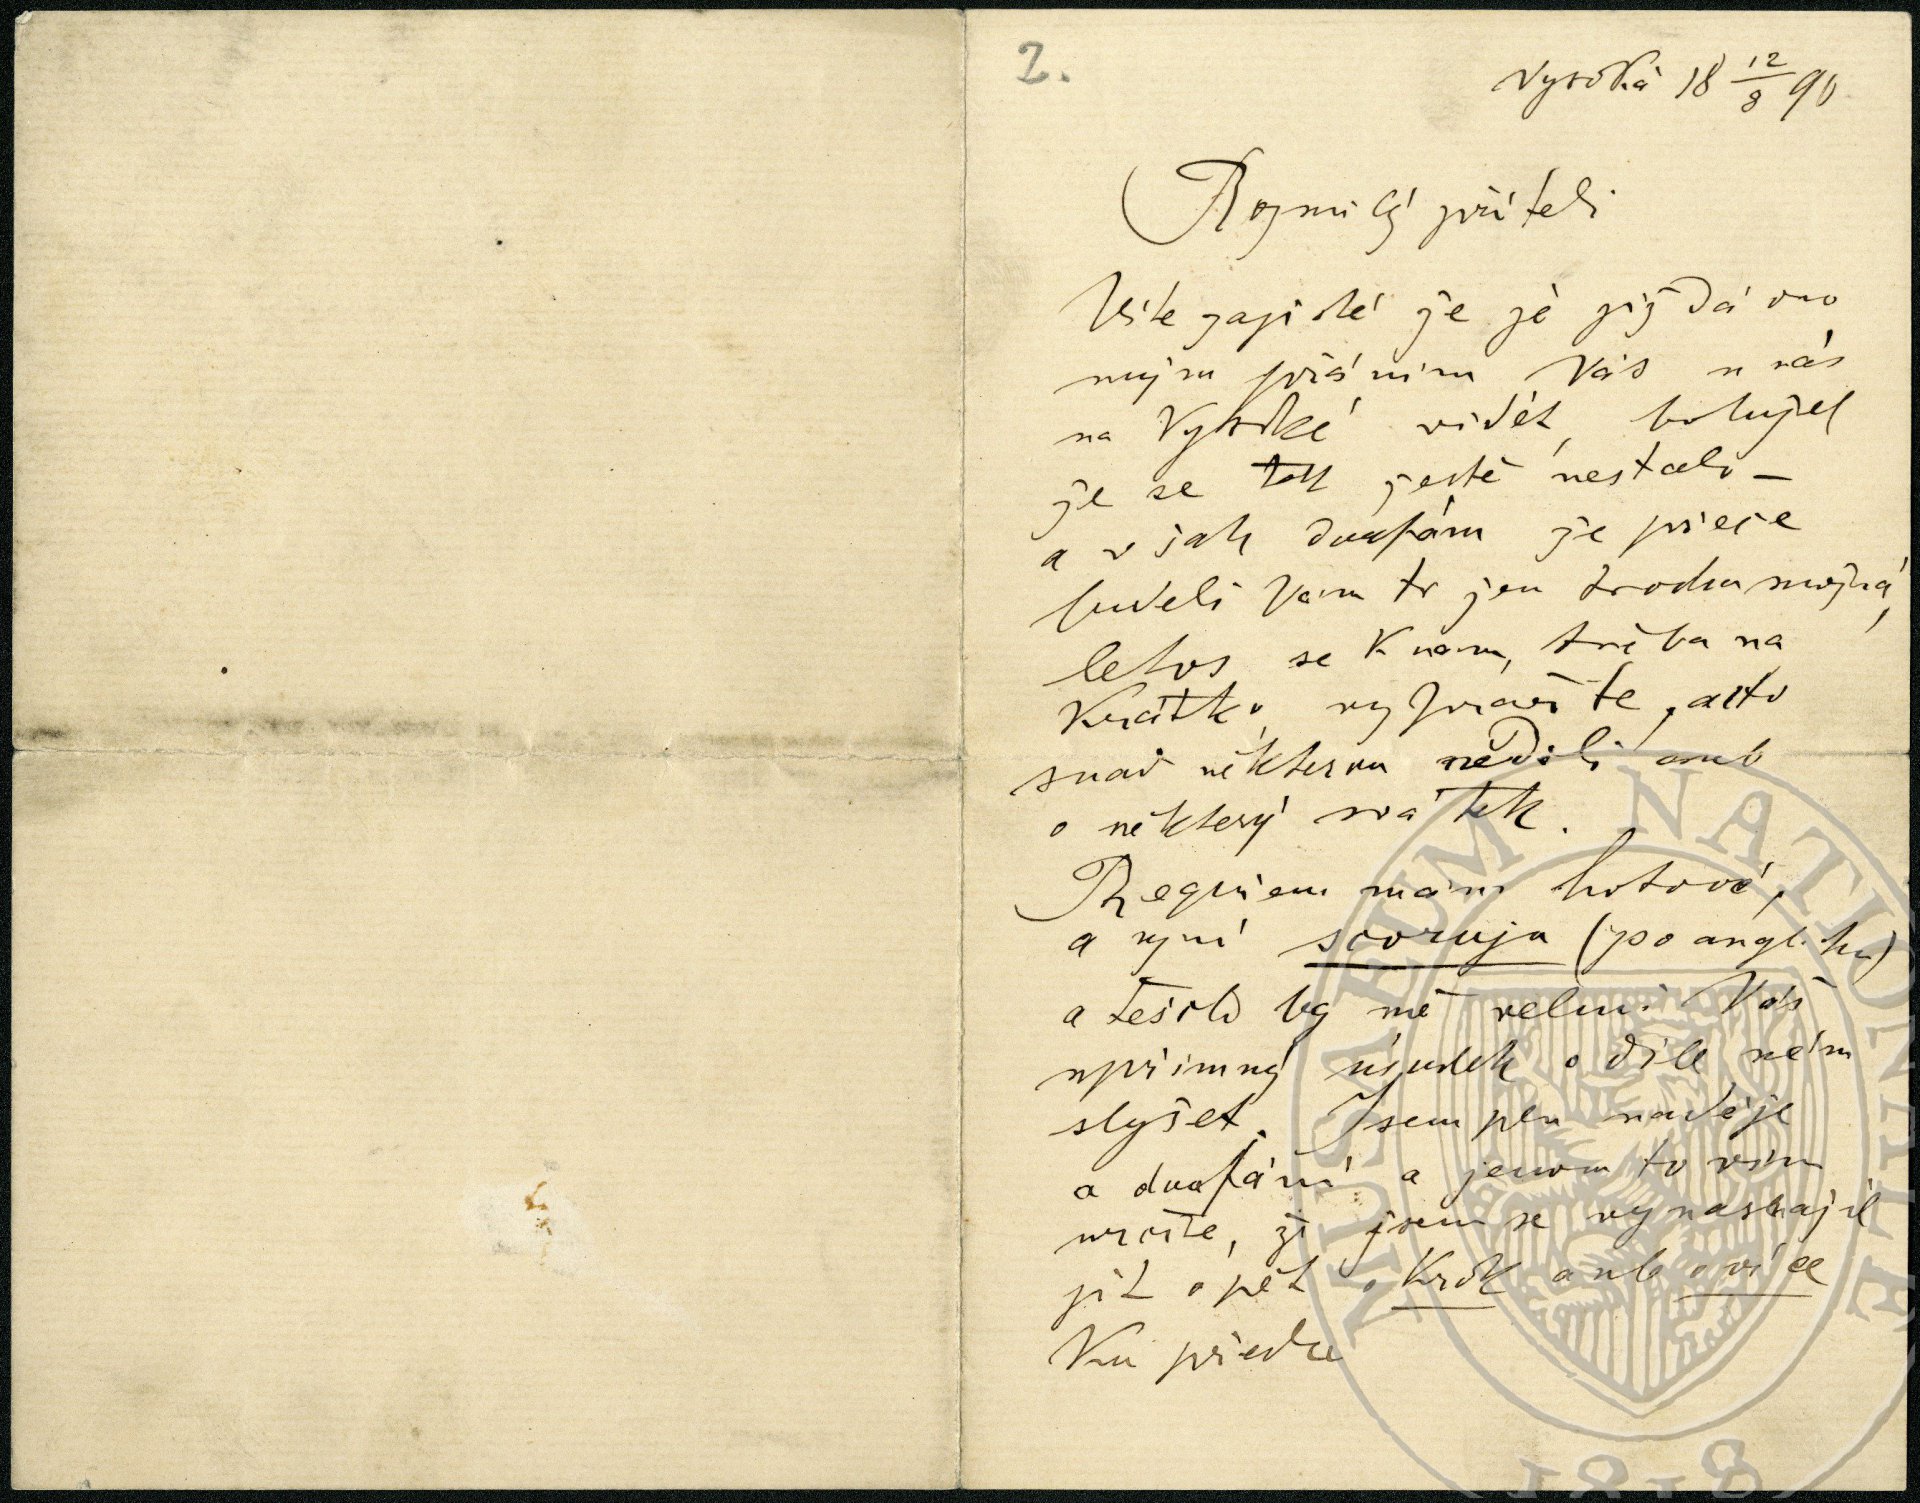 2.
Vysoká 18 12/8 90
Rozmilý příteli
Víte zajisté že jé již dávno
mým přáním Vás u nás
na Vysoké vidět, bohužel
že se tak jestě nestalo –
avšak doufám že přece
budeli Vám to jen trochu možná,
letos se k nám, třeba na
krátko, vypravíte, a to
snad některou neděli anb
o některý svátek.
Requiem mám hotové,
a nyní scoruju (po anglicku)
a těšilo by mě velmi Váš
upřimný úsudek o díle něm
slyšet. Jsem pln naděje
a doufání a jenom to vím
určitě, že jsem se vynasnažil
jít opět o krok anb o více
Ku předu
MUSAEUM NATIONALE
1818